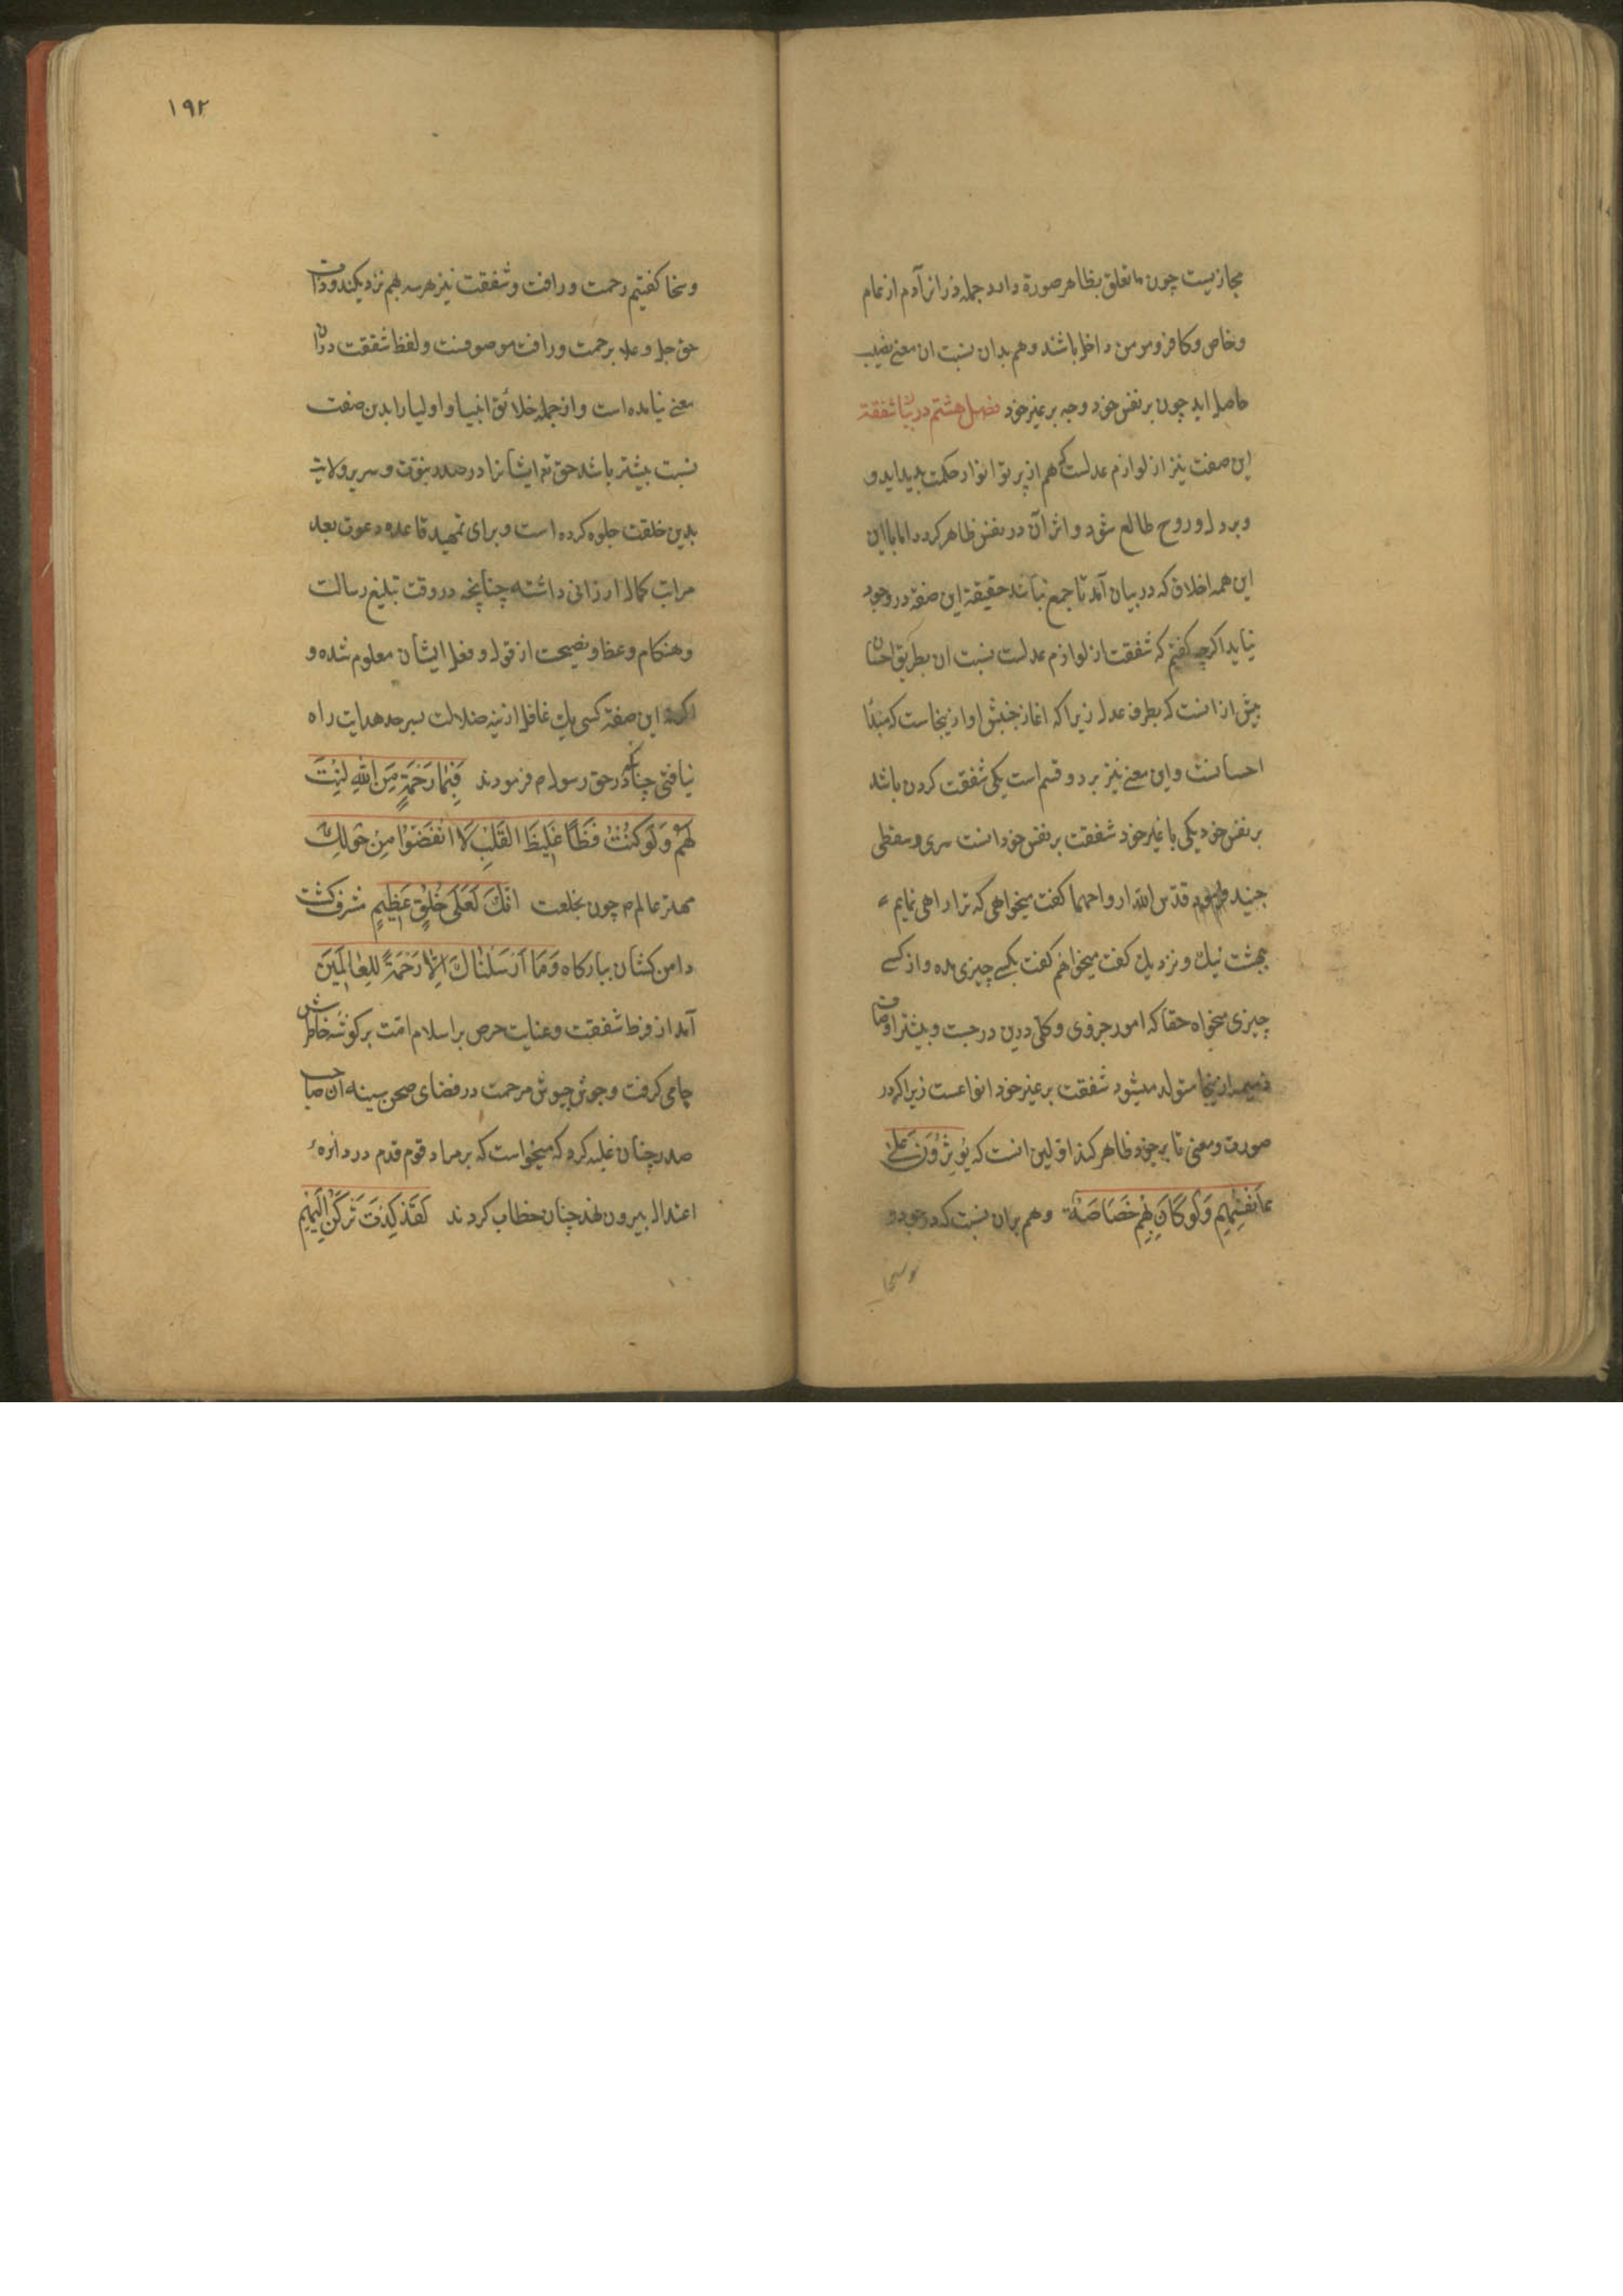 مجازیست چون ما تعلق بظاهر صورة دارد جمله ذراتر آدم از عام
وخاص وکافر ومومن داخل باشند وهم بدان نسبت ان معنے نصیب
حاصل اید چون بر نفس خود وچه بر غیر خود فصل هشتم در بیان شفقة
این صفت نیز از لوازم عدلست که هم از پرتو انوار حکمت پدید اید و
وبر دل وروح طالع شود واثر آن در نفس ظاهر کردد اما با این
این همه اخلاق که در بیان آمد تا جمع نباشد حقیقة این صفة در وجود
نیاید اکرچه کفتیم که شفقت از لوازم عدلست نسبت ان بطریق احسان
بیش از انست که بطرف عدل زیرا که اغاز جنبش او از ینجاست که مبدٔا
احسانست واین معنے نیز بر دو قسم است یکی شفقت کردن باشد
بر نفس خود یکی با غیر خود شفقت بر نفس خود انست سری وسقطی
جنید قدّس الله ارواحهما کفت میخواهی که ترا راهی نمایم
بهشت نیك ونزدیك کفت میخواهم کفت بکسے چیزی مده واز کسے
چیزی مخواه حقا که امور جزوی وکلی درین درجست وبیشتر اوصاف
ذمیمه از ینجا متولد میشود شفقت بر غیر خود انواعست زیرا که در
صورت ومعنی تا بر چه ظاهر کند اوّلین انست که یُؤثِرُوُنَ عَلیٰ
اَنْفُسِهِم وَلَوکَانَ بِهِم خَصَاصَة وهم بران نسبت که در وجود و
وسخا
١٩٢
وسخا کفتیم رحمت ورافت وشفقت نیز هر سه بهم نزدیکند وذات
حق جل وعلا برحمت ورافت موصوفست ولفظ شفقت دران
معنے نیامده است واز جمله خلائق انبیا واولیا را بدین صفت
نسبت بیشتر باشد حق تع ایشانرا در صدر نبوّت وسریر ولایت
بدین خلقت جلوه کرده است وبرای تمهید قاعده دعوت بعد
مراتب کمال ارزانی داشته چنانچه در وقت تبلیغ رسالت
وهنکام وعظ ونصیحت از قول وفعل ایشان معلوم شده و
اکر نه این صفة کسی یك غافل از تیه ضلالت بسرحد هدایت راه
نیافتی چنانکه در حق رسول م فرمودند فَبِمَا رَحْمَةٍ مِنَ اللّٰهِ لِنْتَ
لَهُمْ وَلَوکُنْتَ فَظًّا غَلِیظَ القَلْبِ لَا انْفَضُّوْا مِنْ حَوْلِكَ
مهتر عالم م چون بخلعت انّكَ لَعَلٰی خُلُقٍ عَظِیمٍ مشرف کشت
دامن کشان ببارکاه وَمَا اَرْسَلْنَاكَ اِلّا رَحْمَةً لِلْعٰالَمِینَ
آمد از فرط شفقت وعنایت حرص بر اسلام امّت بر کوشه خاطرش
جامی کرفت وجوش جیوش مرحمت در فضای صحن سینه ان صاحب
صدر چنان غلبه کرد که میخواست که بر مراد قوم قدم در دائره
اعتدال بیرون نهد چنان خطاب کردند لَقَدْ کِدْتَ تَرْکَنُ اِلَیْهِم